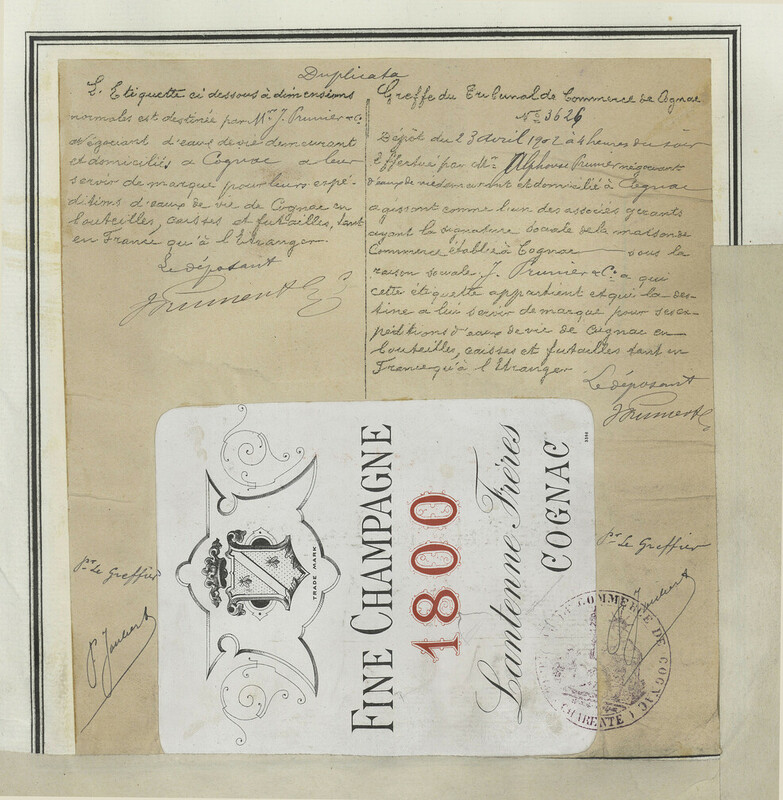 Duplicata
L'Etiquette ci dessous à dimensions
normales est destinée par Mrs J. Prunier & Co.
Négociant d'eaux de vie demeurant
et domiciliés à Cognac a leur
servir de marque pour leurs expé-
ditions d'eaux de vie de Cognac en
bouteilles, caisses et futailles, tant
en France qu'à l'Etranger.
Le déposant
J Prunier & Co
Greffe du Tribunal de Commerce de Cognac
No 3626
Dépôt du 23 avril 1902 à 4 heures du soir
Effectué par Mr Alphonse Prunier négociant
d'eaux de vie demeurant et domicilié à Cognac
agissant comme l'un des associés gérants
ayant la signature sociale de la maison de
Commerce établie à Cognac sous la
raison sociale J. Prunier & Co. a qui
cette étiquette appartient et qui la des-
tine à lui servir de marque pour ses ex-
péditions d'eaux de vie de Cognac en
bouteilles, caisses et futailles tant en
France qu'à l'Etranger
Le déposant
J Prunier & Co
FINE CHAMPAGNE
1800
Lantenne Frères
COGNAC
TRADE MARK
Pr Le Greffier
Pr Le Greffier
COMMERCE DE COGNAC
CHARENTE